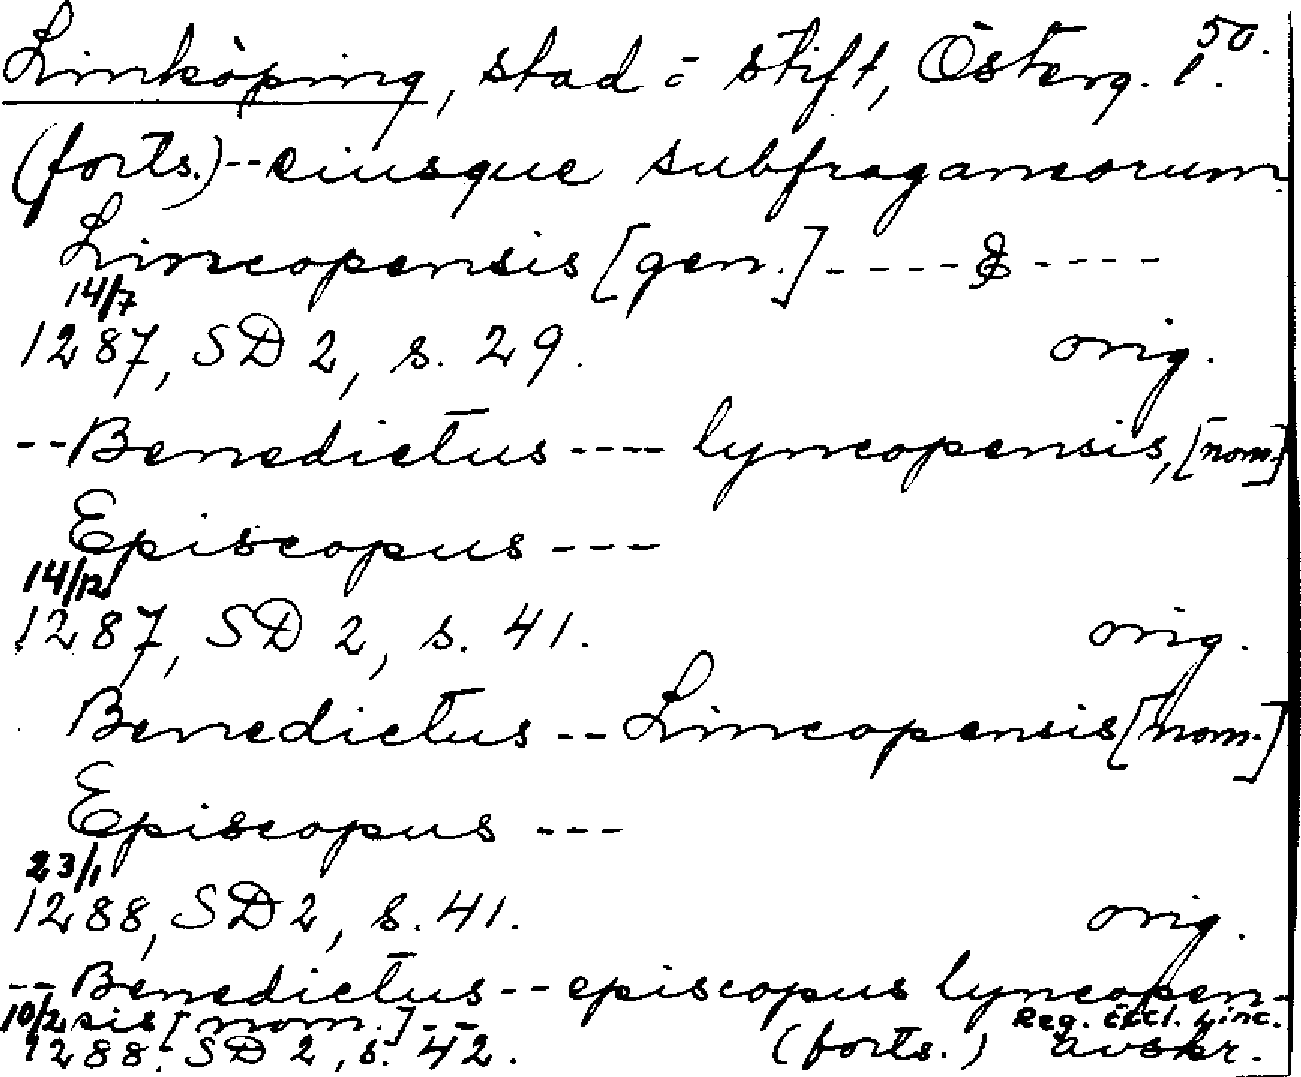 Linköping, stad o stift, Österg. 50.
1.
(forts.)--eiusque subfraganeorum
Lincopensis [gen.]-----&----
14/7
1287, SD 2, s. 29. orig.
--Benedictus---- lyncopensis, [nom.]
Episcopus ---
14/12
1287, SD 2, s. 41. orig.
Benedictus -- Lincopensis [nom.]
Episcopus ---
23/1
1288, SD 2, s. 41. orig.
-- Benedictus -- episcopus lyncopen-
10/2 sis [nom.]-- Reg. Eccl. Linc.
1288. SD 2, s. 42. (forts.) avskr.